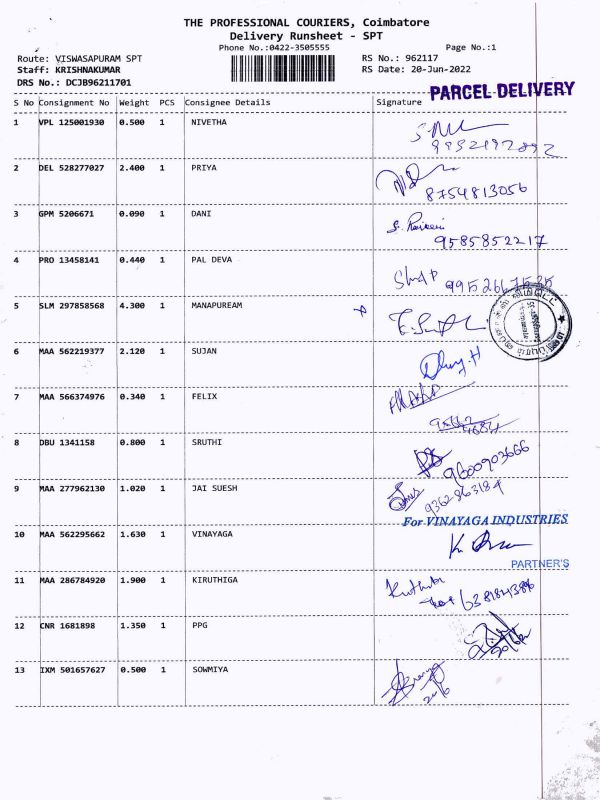 THE PROFESSIONAL COURIERS, Coimbatore
Delivery Runsheet - SPT
Phone No.:0422-3505555
Page No.:1
Route: VISWASAPURAM SPT
RS No.: 962117
Staff: KRISHNAKUMAR
RS Date: 20-Jun-2022
DRS No.: DCJB96211701
PARCEL DELIVERY
S No Consignment No Weight PCS Consignee Details Signature
1 VPL 125001930 0.500 1 NIVETHA
2 DEL 528277027 2.400 1 PRIYA
8754813056
3 GPM 5206671 0.090 1 DANI
9585852217
4 PRO 13458141 0.440 1 PAL DEVA
5 SLM 297858568 4.300 1 MANAPUREAM
6 MAA 562219377 2.120 1 SUJAN
7 MAA 566374976 0.340 1 FELIX
8 DBU 1341158 0.800 1 SRUTHI
9600903666
9 MAA 277962130 1.020 1 JAI SUESH
9362863184
For VINAYAGA INDUSTRIES
10 MAA 562295662 1.630 1 VINAYAGA
PARTNER'S
11 MAA 286784920 1.900 1 KIRUTHIGA
12 CNR 1681898 1.350 1 PPG
13 IXM 501657627 0.500 1 SOWMIYA